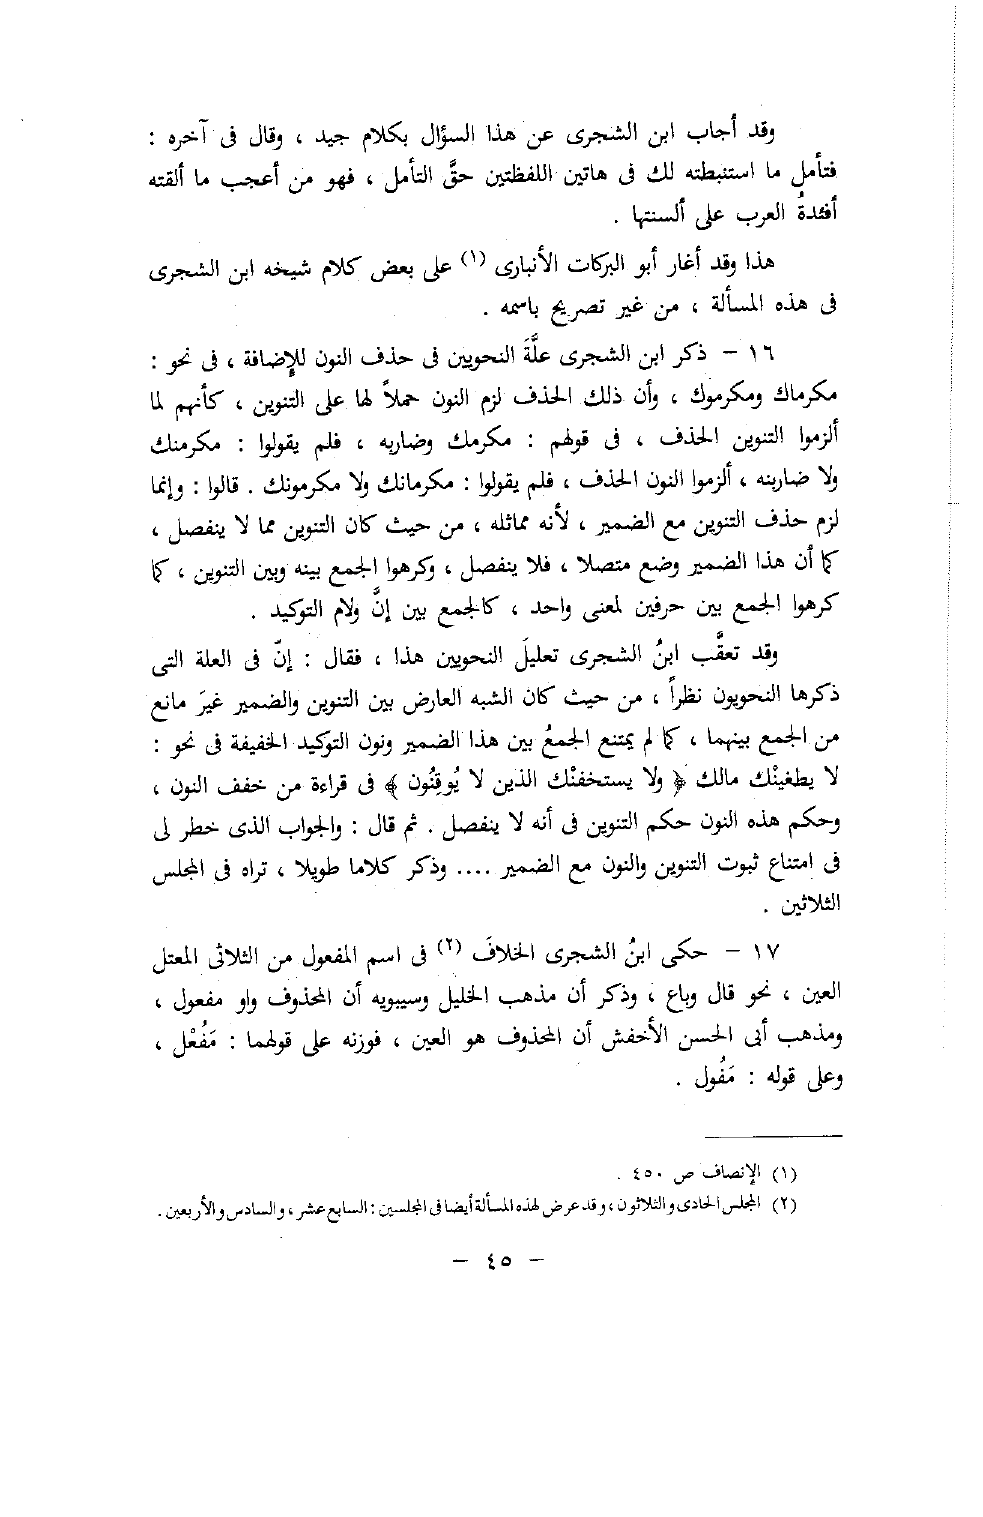 وقد أجاب ابن الشجرى عن هذا السؤال بكلام جيد ، وقال فى آخره :
فتأمل ما استنبطته لك فى هاتين اللفظتين حقَّ التأمل ، فهو من أعجب ما ألقته
أفئدةُ العرب على ألسنتها .
هذا وقد أغار أبو البركات الأنبارى (١) على بعض كلام شيخه ابن الشجرى
فى هذه المسألة ، من غير تصريح باسمه .
١٦ – ذكر ابن الشجرى علَّةَ النحويين فى حذف النون للإِضافة ، فى نحو :
مكرماك ومكرموك ، وأن ذلك الحذف لزم النون حملاً لها على التنوين ، كأنهم لما
ألزموا التنوين الحذف ، فى قولهم : مكرمك وضاربه ، فلم يقولوا : مكرمنك
ولا ضاربنه ، ألزموا النون الحذف ، فلم يقولوا : مكرمانك ولا مكرمونك . قالوا : وإنما
لزم حذف التنوين مع الضمير ، لأنه مماثله ، من حيث كان التنوين مما لا ينفصل ،
كما أن هذا الضمير وضع متصلا ، فلا ينفصل ، وكرهوا الجمع بينه وبين التنوين ، كما
كرهوا الجمع بين حرفين لمعنى واحد ، كالجمع بين إنَّ ولام التوكيد .
وقد تعقَّب ابنُ الشجرى تعليلَ النحويين هذا ، فقال : إنّ فى العلة التى
ذكرها النحويون نظراً ، من حيث كان الشبه العارض بين التنوين والضمير غيرَ مانع
من الجمع بينهما ، كما لم يمتنع الجمعُ بين هذا الضمير ونون التوكيد الخفيفة فى نحو :
لا يطغينْك مالك ﴿ ولا يستخفنْك الذين لا يُوقِنُون ﴾ فى قراءة من خفف النون ،
وحكم هذه النون حكم التنوين فى أنه لا ينفصل . ثم قال : والجواب الذى خطر لى
فى امتناع ثبوت التنوين والنون مع الضمير .... وذكر كلاما طويلا ، تراه فى المجلس
الثلاثين .
١٧ – حكى ابنُ الشجرى الخلافَ (٢) فى اسم المفعول من الثلاثى المعتل
العين ، نحو قال وباع ، وذكر أن مذهب الخليل وسيبويه أن المحذوف واو مفعول ،
ومذهب أبى الحسن الأخفش أن المحذوف هو العين ، فوزنه على قولهما : مَفُعْل ،
وعلى قوله : مَفُول .
(١) الإنصاف ص ٤٥٠ .
(٢) المجلس الحادى والثلاثون ، وقد عرض لهذه المسألة أيضا فى المجلسين : السابع عشر ، والسادس والأربعين .
– ٤٥ –